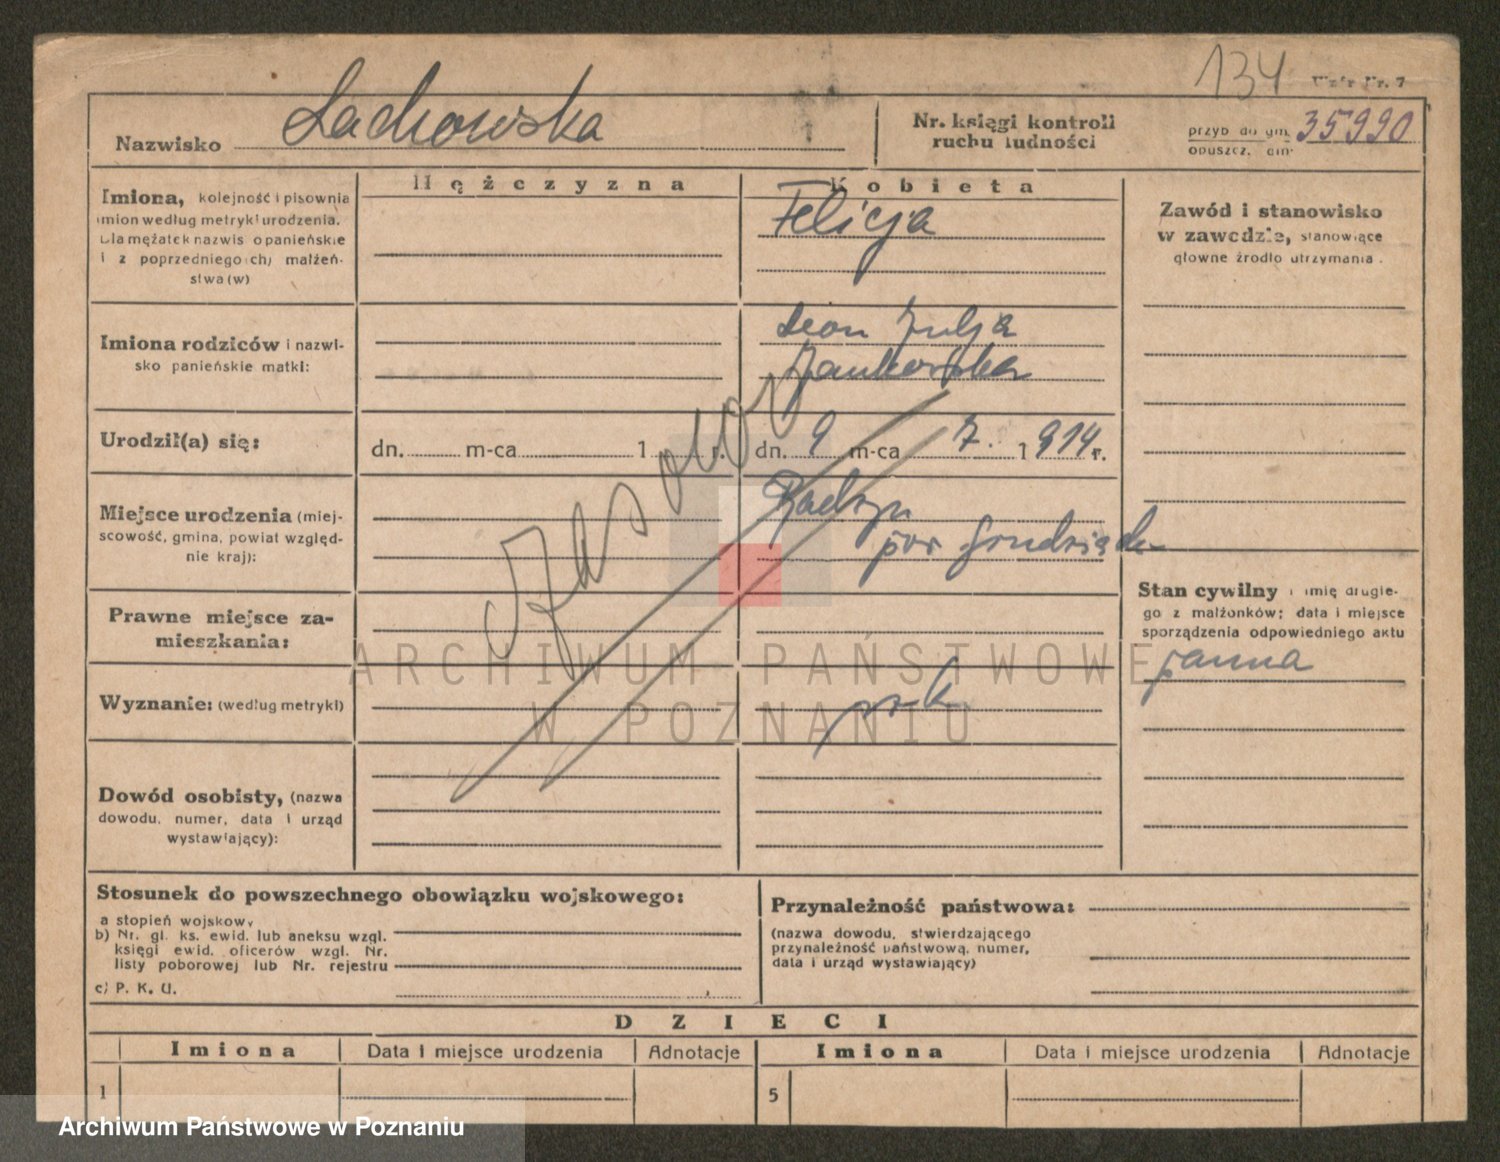 134
Wzór Nr. 7
Nazwisko Lachowska
Nr. księgi kontroli
ruchu ludności
przyb do gm. 35990
opuszcz. gm.
Mężczyzna
Kobieta
Imiona, kolejność i pisownia
imion według metryki urodzenia.
Dla mężatek nazwisko panieńskie
i z poprzedniego(ch) małżeń-
stwa(w)
Felicja
Zawód i stanowisko
w zawodzie, stanowiące
główne źródło utrzymania.
Imiona rodziców i nazwi-
sko panieńskie matki:
Leon Julja
Jankowska
Urodził(a) się:
dn. m-ca 1 r.
dn. 9 m-ca 7. 1914 r.
Miejsce urodzenia (miej-
scowość, gmina, powiat względ-
nie kraj):
Radzyn
pow Grudziądz
Prawne miejsce za-
mieszkania:
Stan cywilny i imię drugie-
go z małżonków; data i miejsce
sporządzenia odpowiedniego aktu
panna
Wyznanie: (według metryki)
rz-k
Dowód osobisty, (nazwa
dowodu, numer, data i urząd
wystawiający):
Stosunek do powszechnego obowiązku wojskowego:
a stopień wojskowy
b) Nr. gł. ks. ewid. lub aneksu wzgl.
księgi ewid. oficerów wzgl. Nr.
listy poborowej lub Nr. rejestru
c) P. K. U.
Przynależność państwowa:
(nazwa dowodu, stwierdzającego
przynależność państwową, numer,
data i urząd wystawiający)
DZIECI
Imiona Data i miejsce urodzenia Adnotacje Imiona Data i miejsce urodzenia Adnotacje
1 5
ARCHIWUM PAŃSTWOWE
W POZNANIU
Archiwum Państwowe w Poznaniu